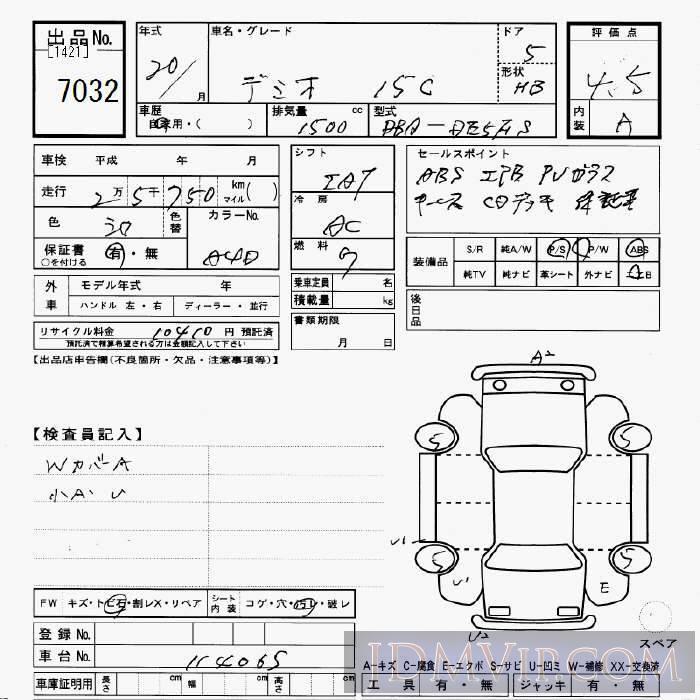 出品No.
[1421]
7032
年式
20/
月
車名・グレード
デミオ 15C
ドア
5
形状
HB
車歴
自家用・( )
排気量 cc
1500
型式
DBA-DE5FS
評価点
4.5
内装
A
車検 平成 年 月
走行 2万5千750 km マイル( )
色
色替
カラーNo.
A4D
保証書 有・無
○を付ける
外車
モデル年式 年
ハンドル 左・右
ディーラー・並行
リサイクル料金 10410 円 預託済
預託済で精算希望される方は金額記入して下さい
シフト
IAT
冷房
AC
燃料
乗車定員 名
積載量 kg
書類期限
月 日
セールスポイント
ABS エアB PVガラス
キーレス CDデッキ 保証書
装備品
S/R 純A/W P/S P/W ABS
純TV 純ナビ 革シート 外ナビ エアB
後日品
【出品店申告欄(不良箇所・欠品・注意事項等)】
【検査員記入】
WカバーA
小A・U
A2
5
5
5
5
E
U2
スペア
FW キズ・トビ石・割レX・リペア
シート内装 コゲ・穴・汚レ・破レ
登録No.
車台No. 114065
車庫証明用 長さ cm 幅 cm 高さ cm
A-キズ C-腐食 E-エクボ S-サビ U-凹ミ W-補修 XX-交換済
工具 有・無 ジャッキ 有・無
IDMVIP.COM